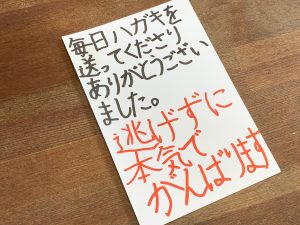 毎日ハガキを
送ってくださり
ありがとうござい
ました。
逃げずに
本気で
がんばります